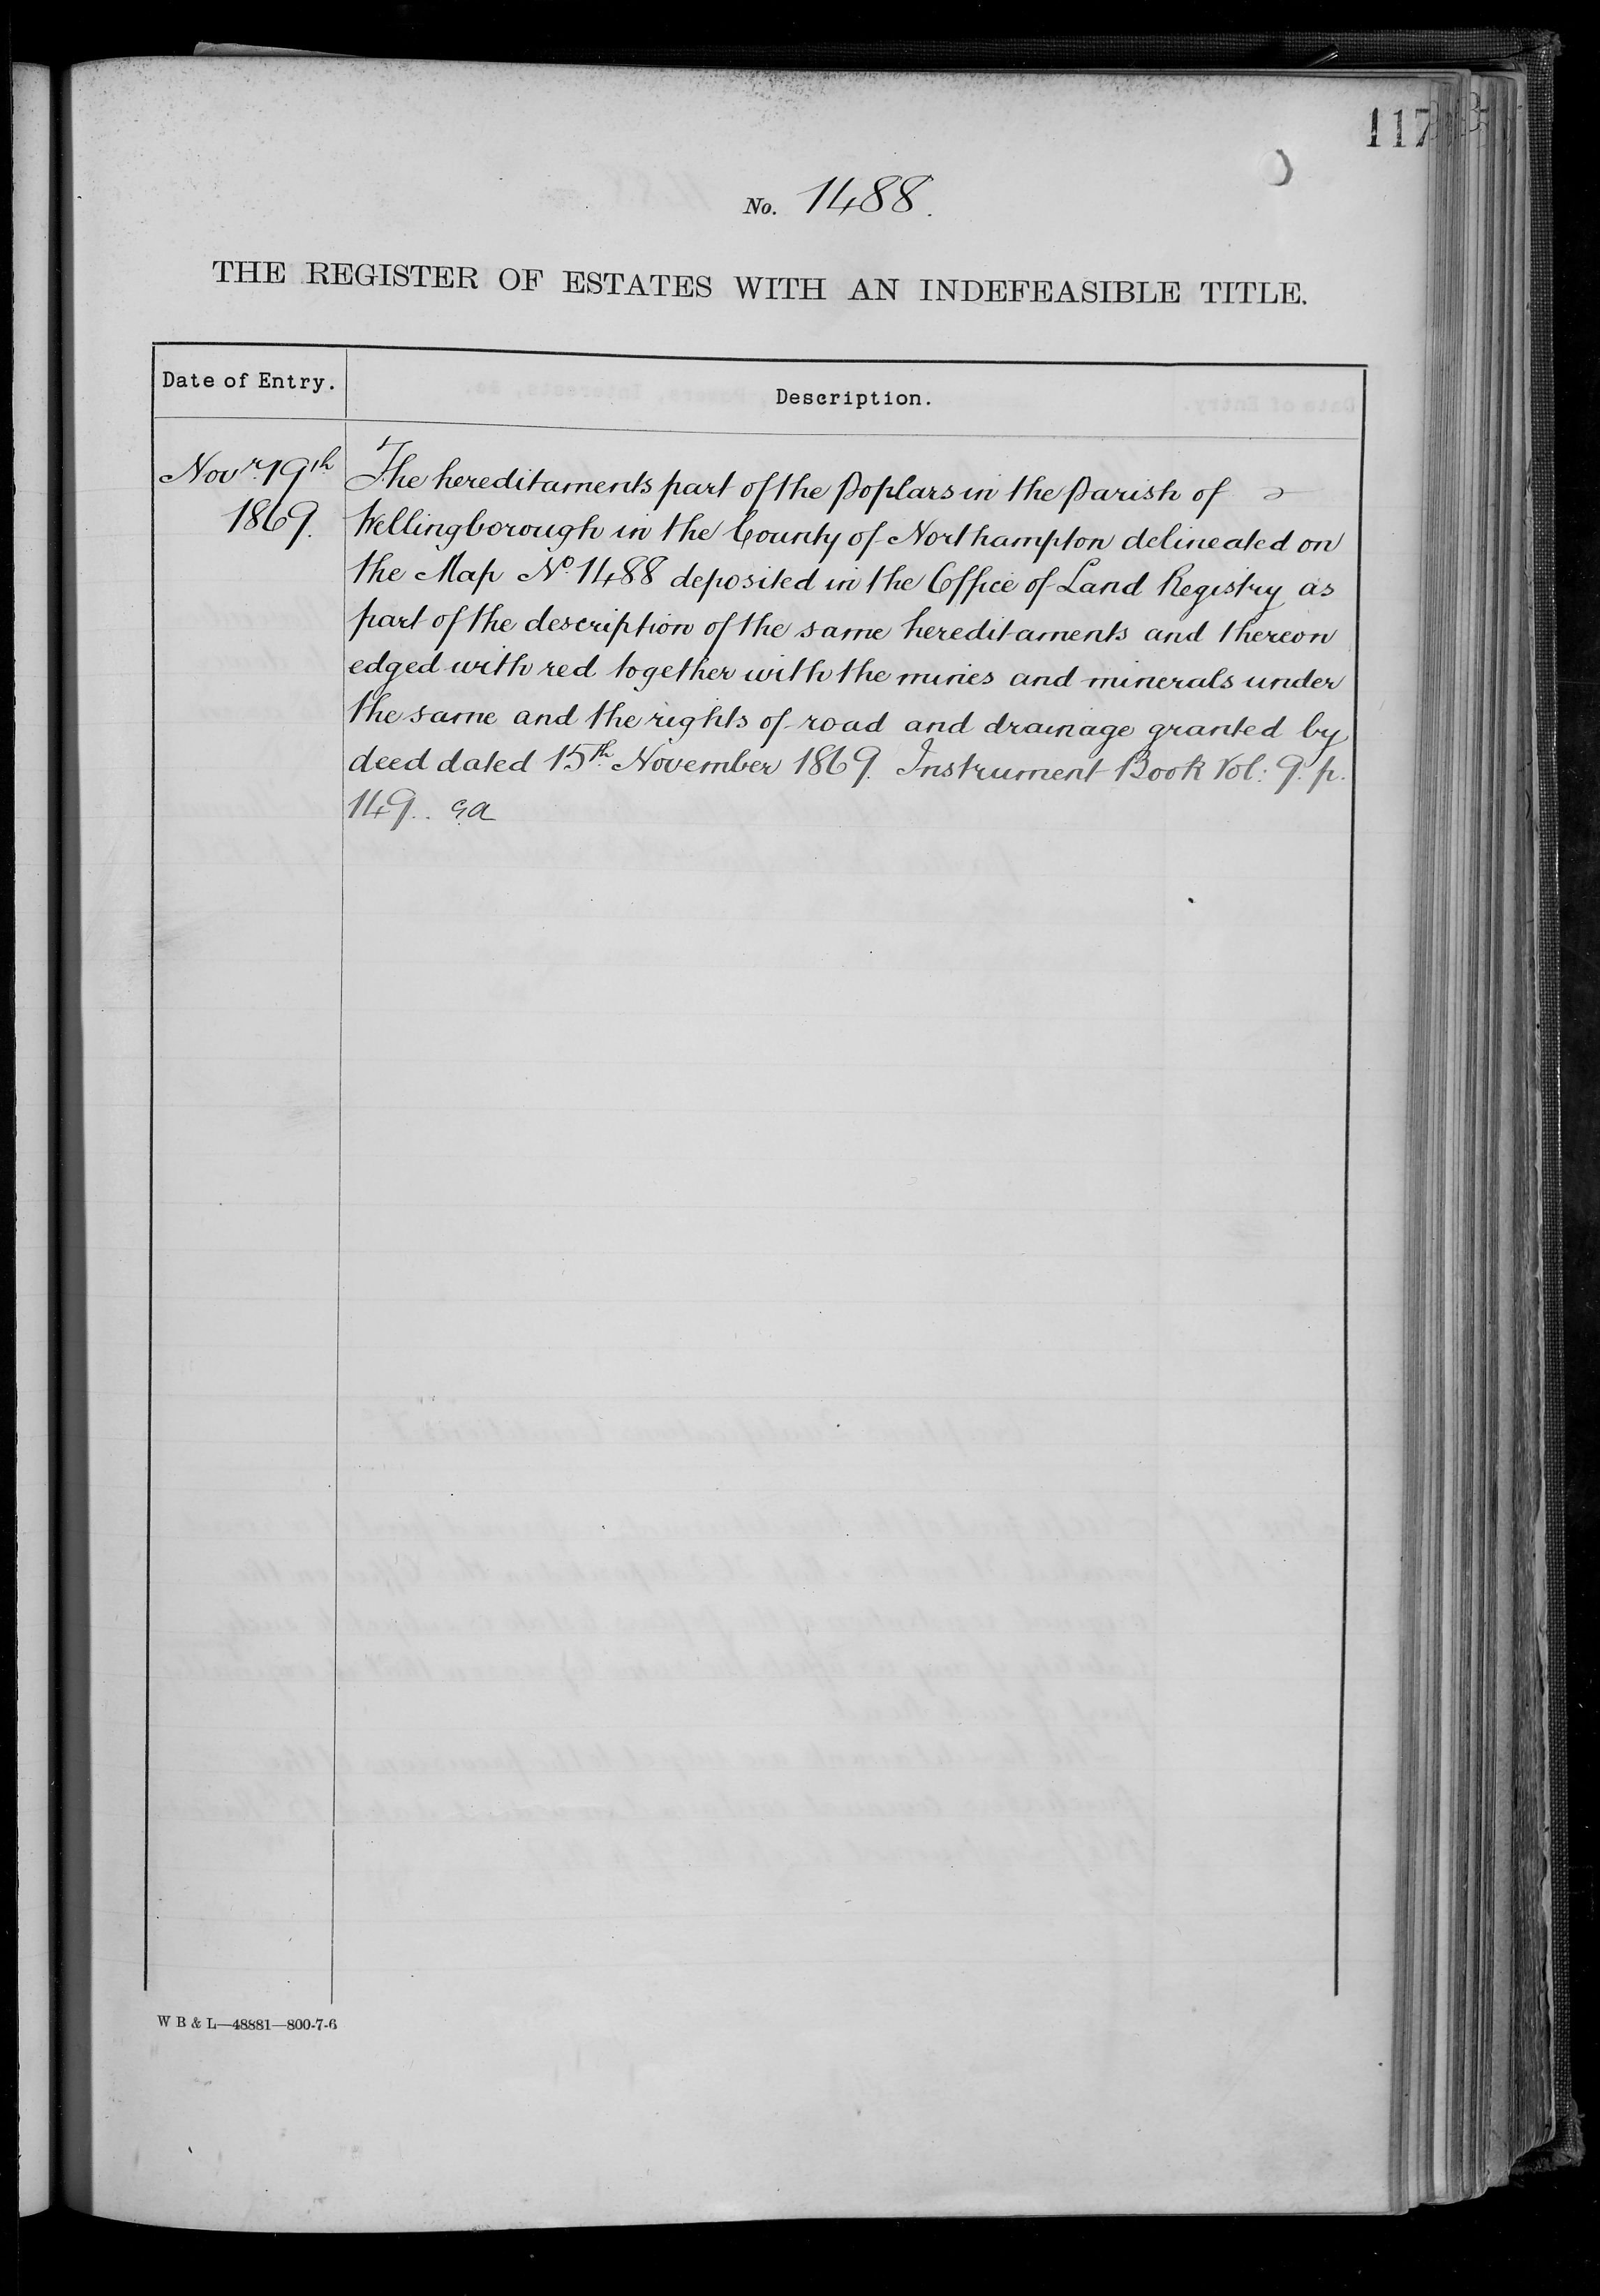 117
No. 1488.
THE REGISTER OF ESTATES WITH AN INDEFEASIBLE TITLE.
Date of Entry.
Description.
Novr. 19th
1869.
The hereditaments part of the Poplars in the Parish of
Wellingborough in the County of Northampton delineated on
the Map No. 1488 deposited in the Office of Land Registry as
part of the description of the same hereditaments and thereon
edged with red together with the mines and minerals under
the same and the rights of road and drainage granted by
deed dated 15th November 1869. Instrument Book Vol: 9. p.
149..
W B & L—48881—800-7-6